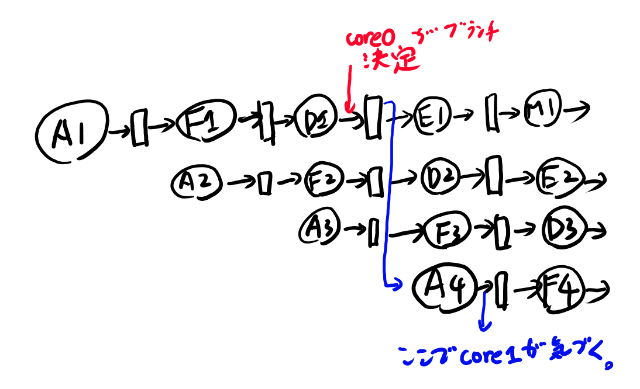 core0 がブランチ
決定
A1 F1 D1 E1 M1
A2 F2 D2 E2
A3 F3 D3
A4 F4
ここでcore1が気づく。